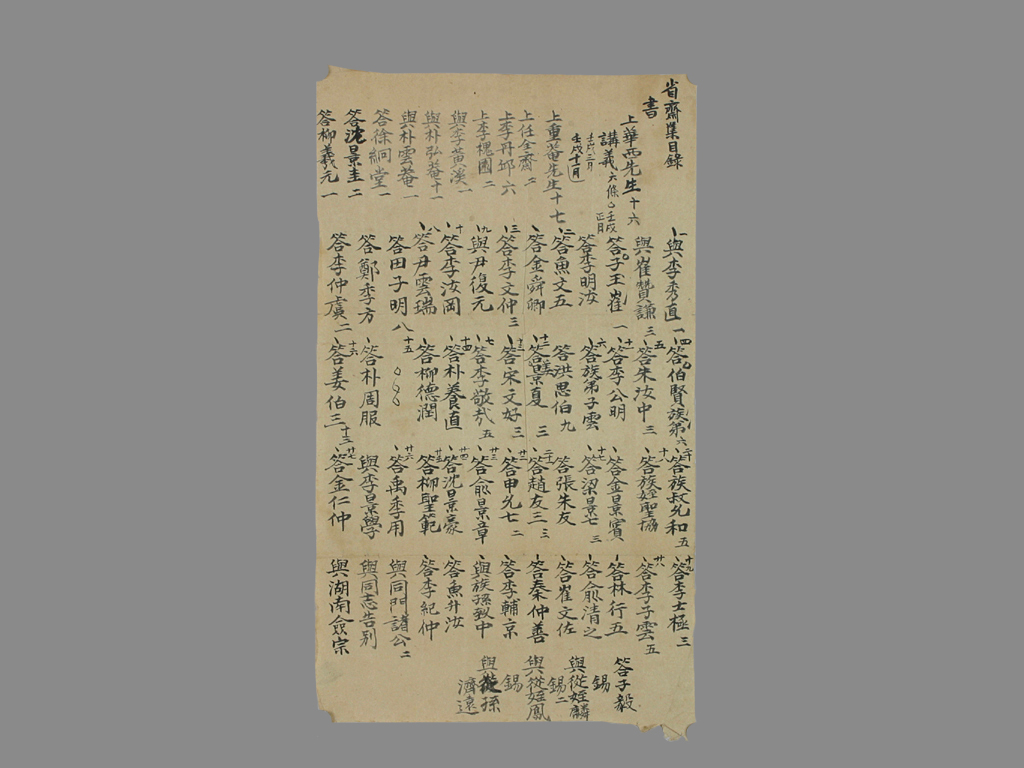 省齋集目錄
書
上華西先生 十六
講義 六條 壬戌正月
壬戌二月
壬戌十一月
上重菴先生 十七
上任全齋 二
上李丹邱 六
上李槐園 二
與李黃溪 二
與朴弘菴 十一
與朴雲菴 一
答徐絅堂 一
答沈景圭 二
答柳羲元 一
一 與李秀直 一
與崔贊謙 三
答子玉崔 一
答李明汝
二 答魚文五
答金舜卿
三 答李文仲 三
九 與尹復元
十 答李汝岡
八 答尹雲瑞
答田子明 八
答鄭季方
答李仲虞 二
四 答伯賢族弟 六
五 答朱汝中 三
十一 答李公明
六 答族弟子雲
答洪思伯 九
十二 答景夏 三
十三 答宋文好 三
七 答李敬哉 五
十四 答朴養直
答柳德潤
十五
答朴周服
十六 答姜伯三 十三
二十 答族叔允和 五
十八 答族姪聖協
答金景賓
十七 答梁景七 三
答張朱友
二十一 答趙友三 三
廿二 答申允七 二
廿三 答俞景章
廿四 答沈景豪
廿五 答柳聖範
廿六 答禹季用
與李景學
廿七 答金仁仲
十九 答李士極 三
廿八 答李子雲 五
答林行五
答俞清之
答崔文佐
答秦仲善
答李輔京
與族孫致中
答魚升汝
答李紀仲
與同門諸公 二
與同志告別
與湖南僉宗
答子毅
錫
與從姪麟
錫 二
與從姪鳳
錫
與從孫
濟遠